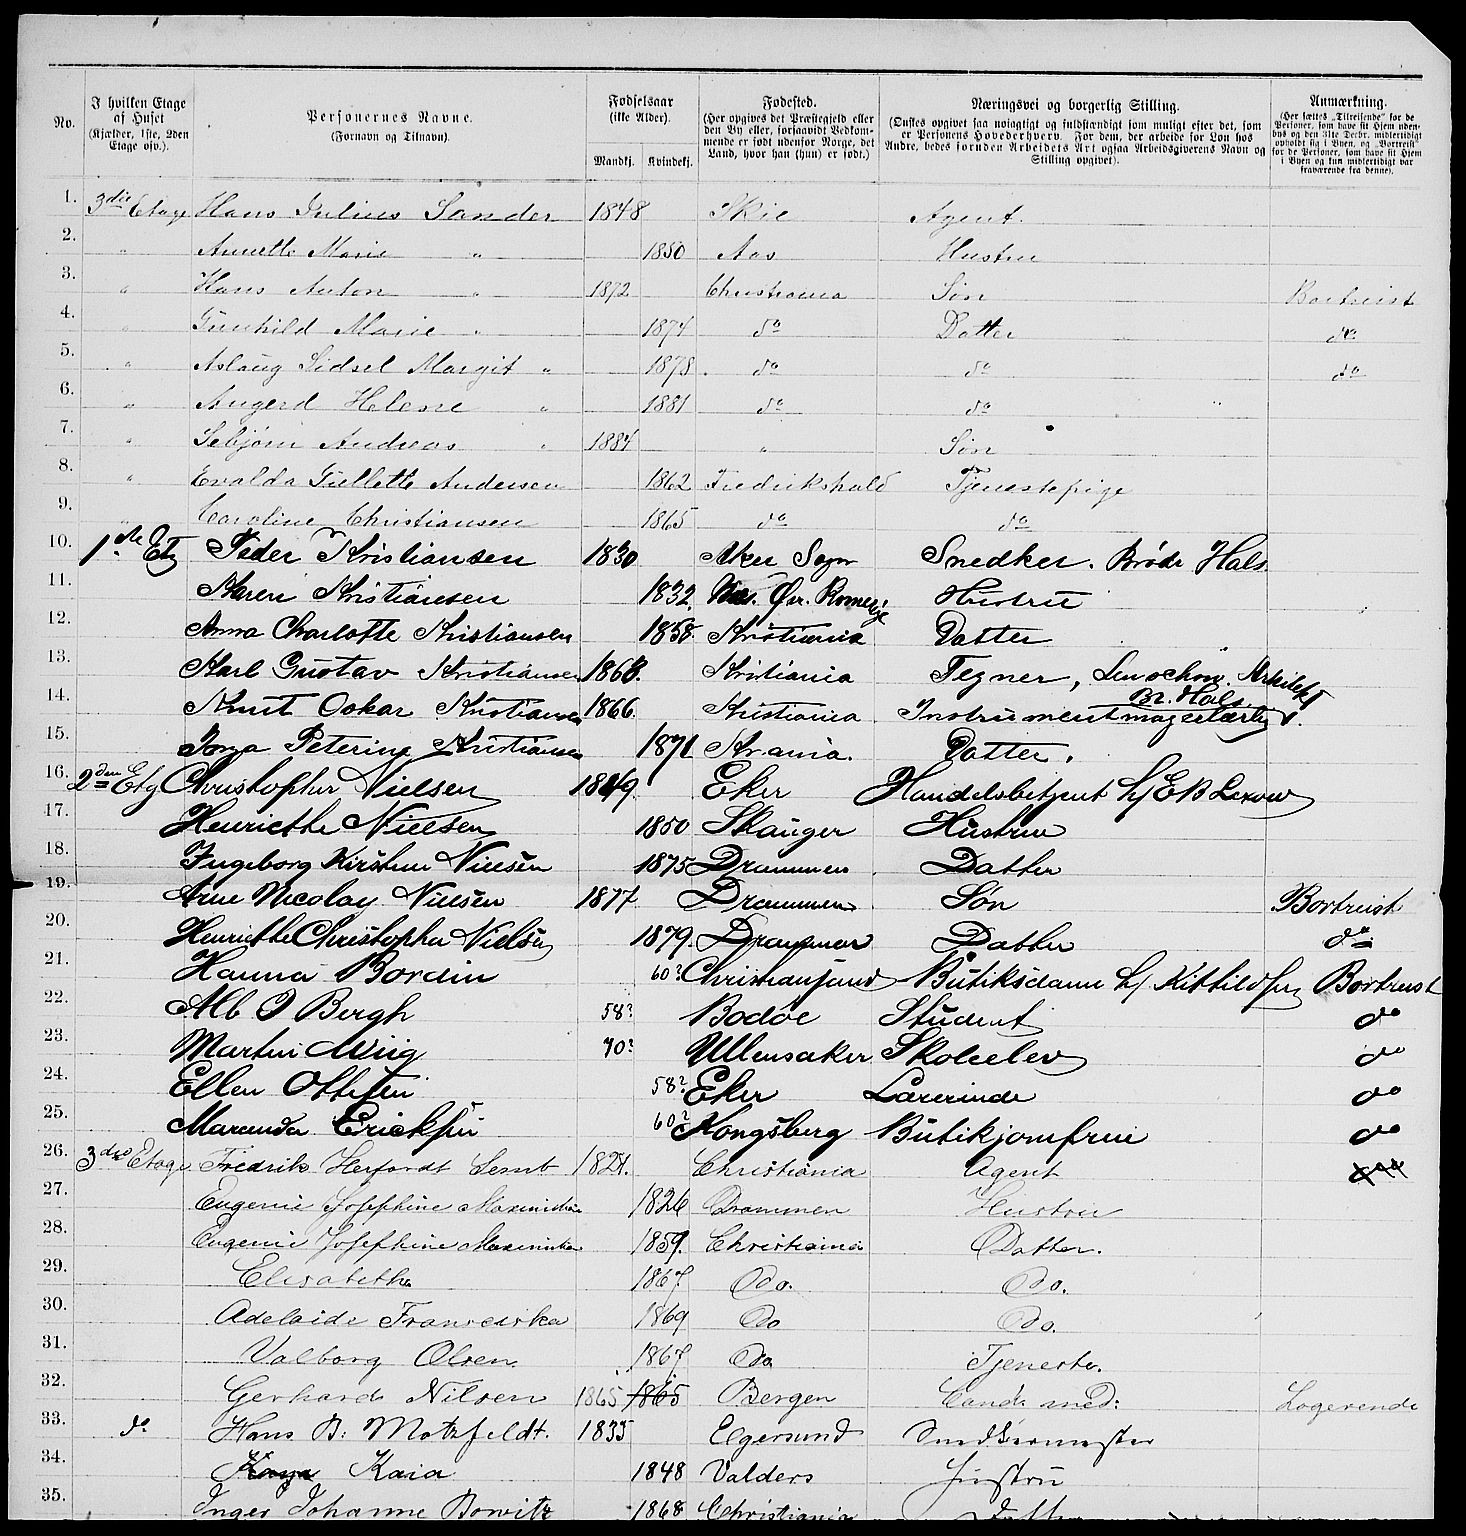 No.
I hvilken Etage af Huset (Kjælder, 1ste, 2den Etage osv.).
Personernes Navne. (Fornavn og Tilnavn).
Fødselsaar (ikke Alder). Mandkj. Kvindekj.
Fødested. (Her opgives det Præstegjeld eller den By eller, forsaavidt Vedkommende er født udenfor Norge, det Land, hvor han (hun) er født.)
Næringsvei og borgerlig Stilling. (Ønskes opgivet saa nøiagtigt og fuldstændigt som muligt efter det, som er Personens Hovederhverv. For dem, der arbeide for Løn hos Andre, bedes foruden Arbeidets Art ogsaa Arbeidsgiverens Navn og Stilling opgivet).
Anmærkning. (Her sættes „Tilreisende“ for de Personer, som have sit Hjem udenbys og den 31te Decbr. midlertidigt opholdt sig i Byen, og „Bortreist“ for de Personer, som have sit Hjem i Byen og kun midlertidigt var fraværende fra denne).
1. 3die Etage Hans Julius Sander 1848 Skie Agent.
2. " Annette Marie " 1850 Aas Hustru
3. " Hans Anton " 1872 Christiania Søn Bortreist
4. " Gunhild Marie " 1874 do Datter do
5. " Aslaug Sidsel Margit " 1878. do do do
6. " Angerd Helene " 1881 do do
7. " Sebjørn Andreas " 1884 " Søn
8. " Evalda Gullette Andersen 1862 Fredrikshald Tjenestepige
9. " Caroline Christiansen 1865 do do
10. 1ste Etg Peder Kristiansen 1830 Aker Sogn Snedker. Brødr Hals.
11. Karen Kristiansen 1832. Øvr. Romerige Hustru
12. Anna Charlotte Kristiansen 1858. Kristiania Datter
13. Karl Gustav Kristiansen 1863. Kristiania Tegner, Arkitekt
14. Knut Oskar Kristiansen 1866. Kristiania Instrumentmagerlærling Br. Hals.
15. Petrine Kristiansen 1871 Kr.ania. Datter.
16. 2den Etg Christopher Nielsen 1849. Eker Handelsbetjent h/ E B Lexow
17. Henriette Nielsen 1850 Skauger Hustru
18. Ingeborg Kirstine Nielsen 1875 Drammen Datter
19. Arne Nicolay Nielsen 1877 Drammen Søn Bortreist
20. Henriette Christopha Nielsen 1879. Drammen Datter do
21. Hanna Bordin 60? Christiansand Butiksdame h/ Kittildsen Bortreist
22. Alb O Bergh 58? Bodøe Student do
23. Martin Wiig 70? Ullensaker Skoleelev do
24. Ellen Ottesen 58? Eker Lærerinde do
25. Marenda Ericksen 60? Kongsberg Butikjomfrue do
26. 3die Etage Fredrik Herfordt Semb 1821. Christiania Agent
27. Eugenie Josephine 1826 Drammen Hustru
28. Eugenie Josephine 1859. Christiania Datter.
29. Elisabeth 1867. Do. Do.
30. Adelaide Franciska 1869 Do Do.
31. Valborg Olsen 1867 Do Tjeneste.
32. Gerhard Nilsen 1865 1865 Bergen Cand: med: Logerende
33. do Hans B: Motzfeldt. 1835 Egersund Snedkermester
34. Kaya Kaia 1848 Valders Hustru
35. Inger Johanne Borwitz 1868 Christiania Datter